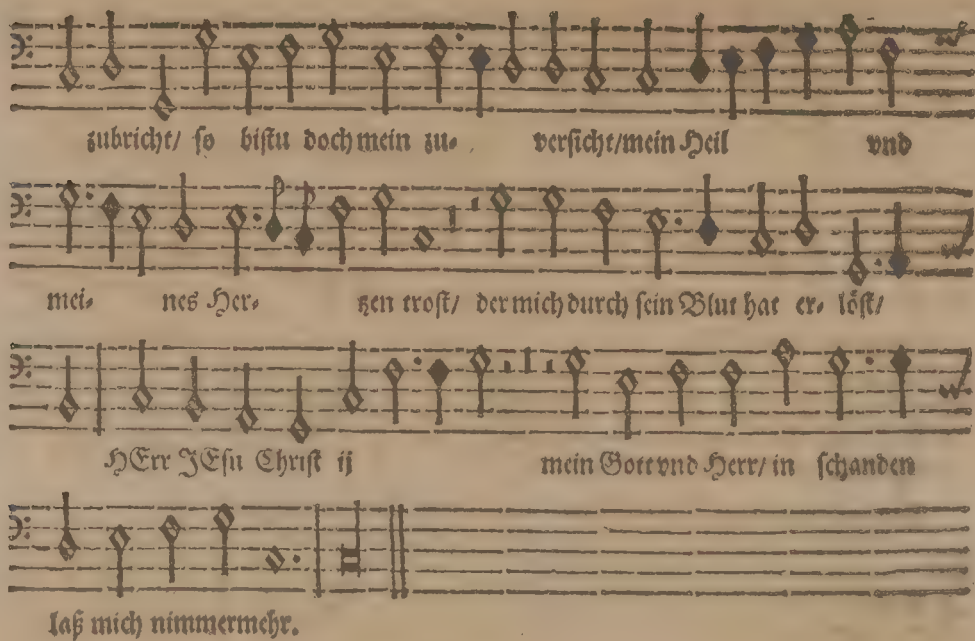 zubricht/ so bistu doch mein zu- versicht/mein Heil vnd
mei- nes Her- tzen trost/ der mich durch sein Blut hat er- löst/
HErr JEsu Christ ij mein Gott vnd Herr/ in schanden
laß mich nimmermehr.